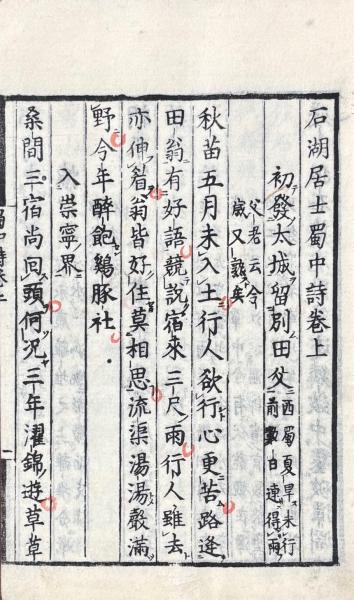 石湖居士蜀中詩卷上
初發太城留別田父西蜀夏旱未行
前數日連得雨
父老云今
歲又熟矣
秋苗五月未入土行人欲行心更苦路逢
田翁有好語競說宿來三尺雨行人雖去
亦伸睂翁皆好住莫相思流渠湯湯聲滿
野今年醉飽鷄豚社
入崇寧界
桑間三宿尚回頭何況三年濯錦遊草草